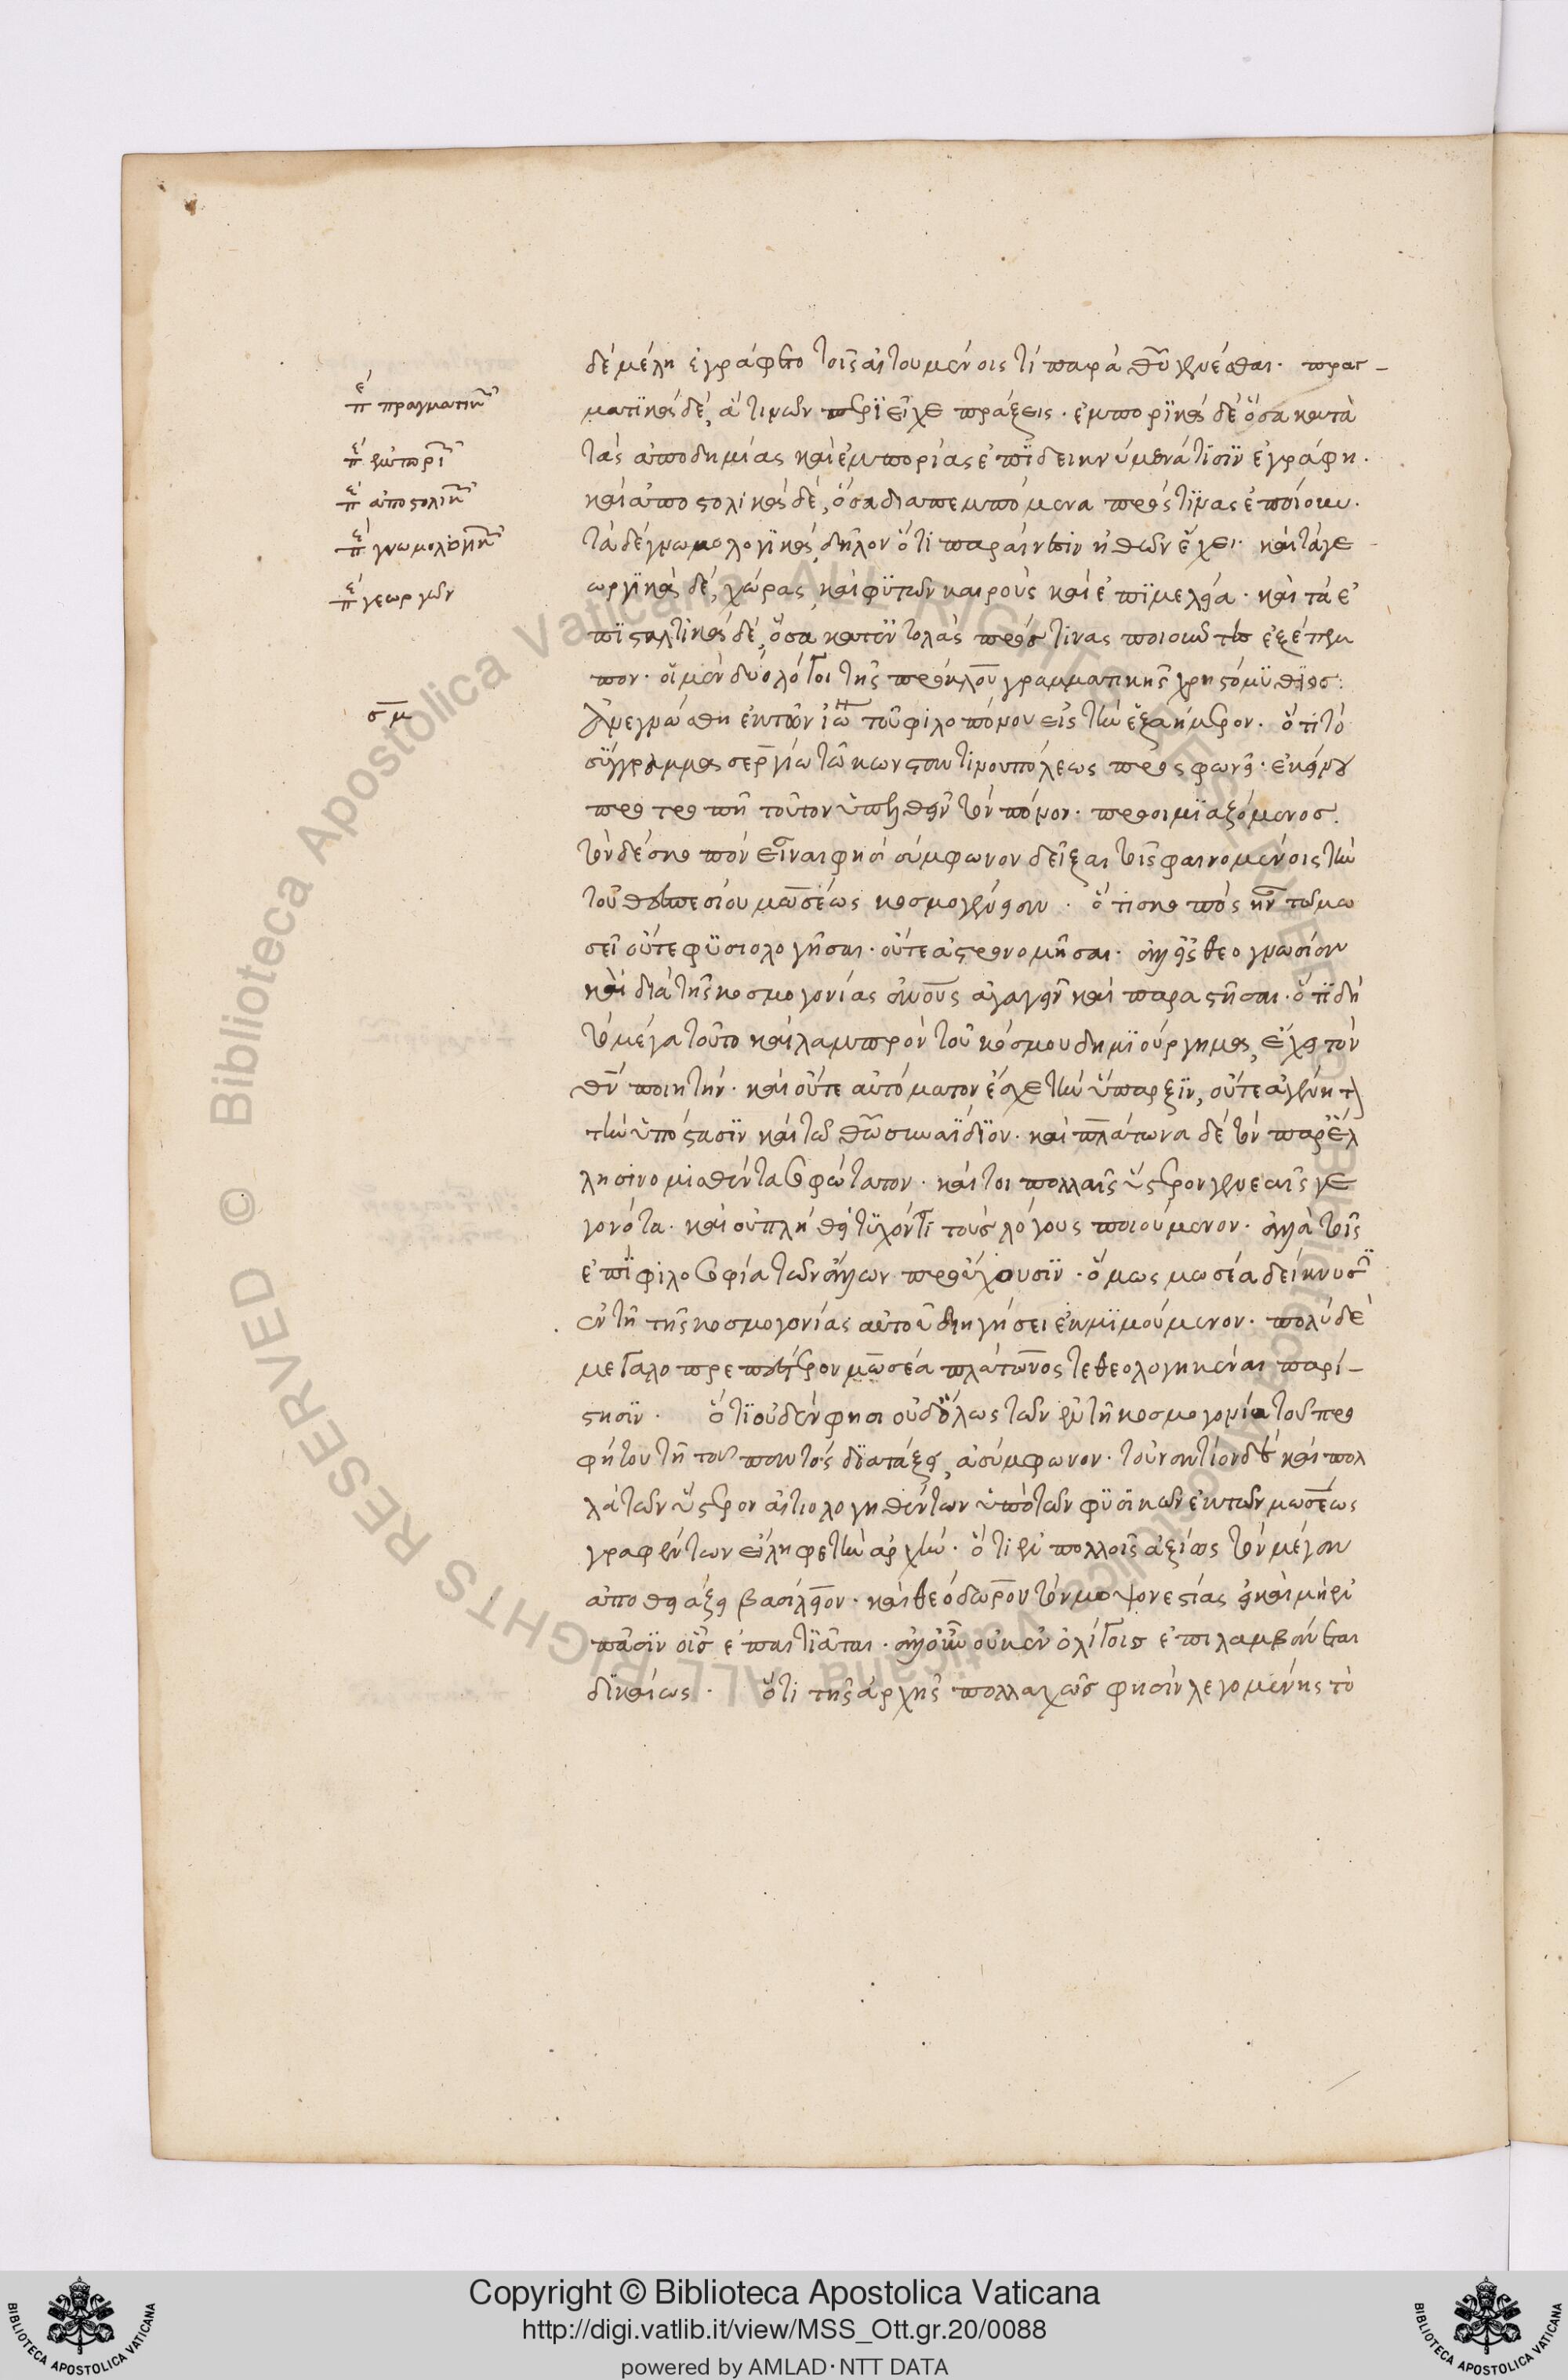 δὲ μέλη ἐγράφετο τοῖς αἰτουμένοις τί παρὰ θῦ γενέσθαι. πραγ-
ματικὰ δέ, ἅ τινων περιεῖχε πράξεις. ἐμπορϊκὰ δὲ ὅσα κατὰ
τὰς ἀποδημίας καὶ ἐμπορίας ἐπιδεικνύμενά τισιν ἐγράφη.
καὶ ἀποστολικὰ δέ, ὅσα διαπεμπόμενα πρός τινας ἐποίουν.
τὰ δὲ γνωμολογικὰ, δῆλον ὅτι παραίνεσιν ἠθῶν ἔχει. καὶ τὰ γε
ωργικὰ δέ, χώρας καὶ φυτῶν καιροὺς καὶ ἐπιμελεία. καὶ τὰ ἐ
πισταλτικὰ δέ, ὅσα κατ' ἐντολὰς πρός τινας ποιοῦντες ἐξέπεμ
πον. οἱ μὲν δύο λόγοι τῆς πρόκλου γραμματικῆς χρηστομϋθίας:
Ἀνεγνώσθη ἐκ τῶν ἰω τοῦ φιλοπόνου εἰς τὴν ἑξαήμερον. ὅτι τὸ
σύγγραμμα σεργίω τῶ κωνσταντινουπόλεως προσφωνεῖ. ἐκείνου
προτροπῆ τοῦτον ὑπελθεῖν τὸν πόνον. προοιμιαζόμενος.
τὸν δὲ σκοπὸν εἶναι φησὶ σύμφωνον δεῖξαι τοῖς φαινομένοις τὴν
τοῦ θεσπεσίου μωσέως κοσμογένεσιν. ὅτι σκοπὸς ἦν τῶ μω
σεῖ οὔτε φϋσιολογῆσαι. οὔτε ἀστρονομῆσαι. ἀλλ' εἰς θεογνωσίαν
καὶ διὰ τῆς κοσμογονίας ἀνους ἀγαγεῖν καὶ παραστῆσαι. ὅτι δὴ
τὸ μέγα τοῦτο καὶ λαμπρὸν τοῦ κόσμου δημιούργημα, ἔχει τὸν
θν ποιητήν. καὶ οὔτε αὐτόματον ἔσχε τὴν ὕπαρξιν, οὔτε ἀγένητον
τὴν ὑπόστασιν καὶ τῶ θῶ συναΐδιον. καὶ πλάτωνα δὲ τὸν παρ' ἕλ
λησι νομισθέντα σοφώτατον. καίτοι πολλαῖς ὕστερον γενεαῖς γε
γονότα. καὶ οὐ πλήθει τυχόντι τοὺς λόγους ποιούμενον. ἀλλὰ τοῖς
ἐπὶ φιλοσοφία τῶν ἄλλων προέχουσιν. ὅμως μωσέα δείκνυσιν
ἐν τῆ τῆς κοσμογονίας αὐτοῦ διηγήσει ἐκμιμούμενον. πολὺ δὲ
μεγαλοπρεπέστερον μωσέα πλάτωνος τεθεολογηκέναι παρί-
στησιν. ὅτι οὐδέν φησι οὐδ' ὅλως τῶν ἐν τῆ κοσμογονία τοῦ προ
φήτου τῆ τοῦ παντὸς διατάξει, ἀσύμφωνον. τοὐναντίον δὲ καὶ πολ
λὰ τῶν ὕστερον αἰτιολογηθέντων ὑπὸ τῶν φυσικῶν ἐκ τῶν μωσέως
γραφέντων εἴληφε τὴν ἀρχήν. ὅτι ἐν πολλοῖς ἀξίως τὸν μέγαν
ἀποθειάζει βασίλειον. καὶ θεόδωρον τὸν μοψουεστίας εἰ καὶ μὴ ἐν
πᾶσιν οἷς ἐπαιτιᾶται. ἀλλ' οὖν οὐκ ἐν ὀλίγοις ἐπιλαμβάνεται
δικαίως. ὅτι τῆς ἀρχῆς πολλαχῶς φησὶν λεγομένης τὸ
πραγματικ
ἐμπορι
ἀποστολικ
γνωμολογικ
γεωργῶν
σμ
Copyright © Biblioteca Apostolica Vaticana
http://digi.vatlib.it/view/MSS_Ott.gr.20/0088
powered by AMLAD·NTT DATA
BIBLIOTECA APOSTOLICA VATICANA
BIBLIOTECA APOSTOLICA VATICANA
© Biblioteca Apostolica Vaticana ALL RIGHTS RESERVED
© Biblioteca Apostolica Vaticana ALL RIGHTS RESERVED